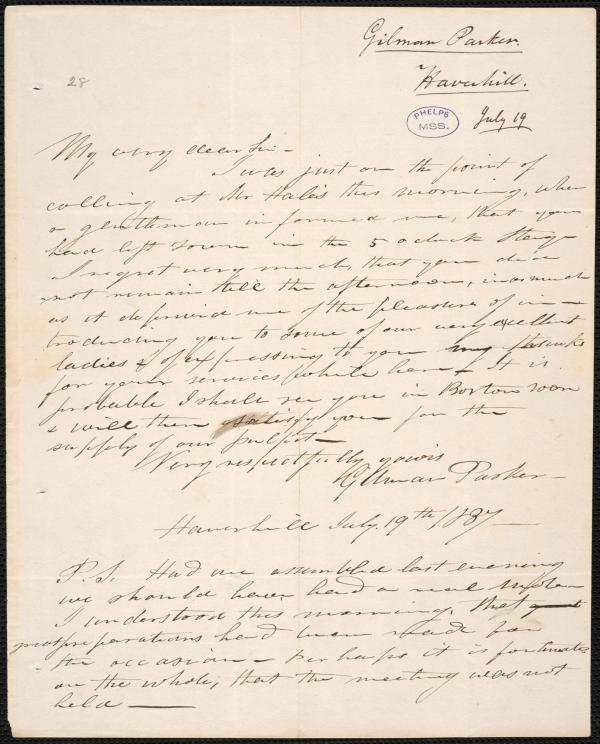 Gilman Parker.
Haverhill.
July 19
28
PHELPS
MSS.
My very dear Sir -
I was just on the point of
calling at Mr Hale's this morning, when
a gentleman informed me, that you
had left town in the 5 o'clock Stage
I regret very much, that you did
not remain till the afternoon, inasmuch
as it deprived me of the pleasure of in-
troducing you to some of our very excellent
ladies & of expressing to you my thanks
for your services while here - It is
probable I shall see you in Boston soon
& will then satisfy you for the
supply of our pulpit -
Very respectfully yours
Gilman Parker -
Haverhill July. 19th/1837 -
P.S. Had we assembled last evening
we should have had a real
I understood this morning, that great
great preparations had been made for
the occasion - Perhaps it is fortunate
on the whole, that the meeting was not
held -